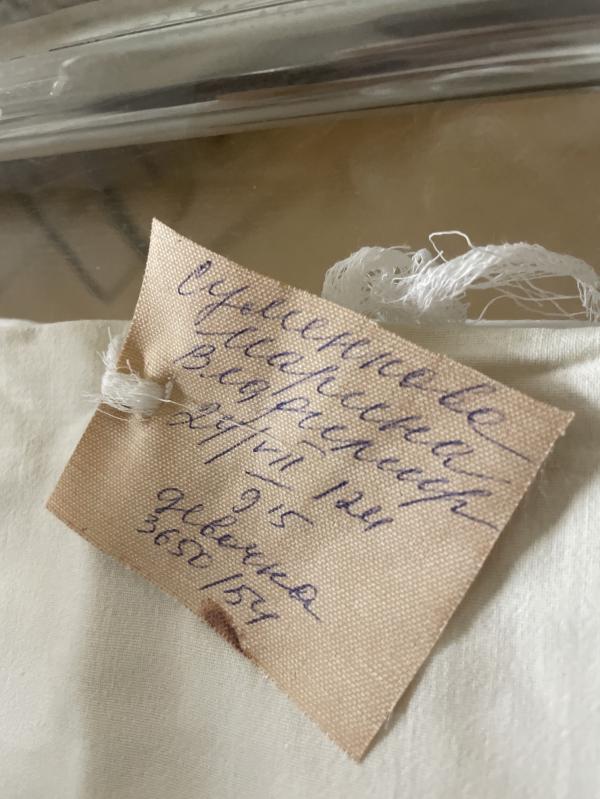 Марина
Владимир
27/VII 124
9 15
девочка
3650/54